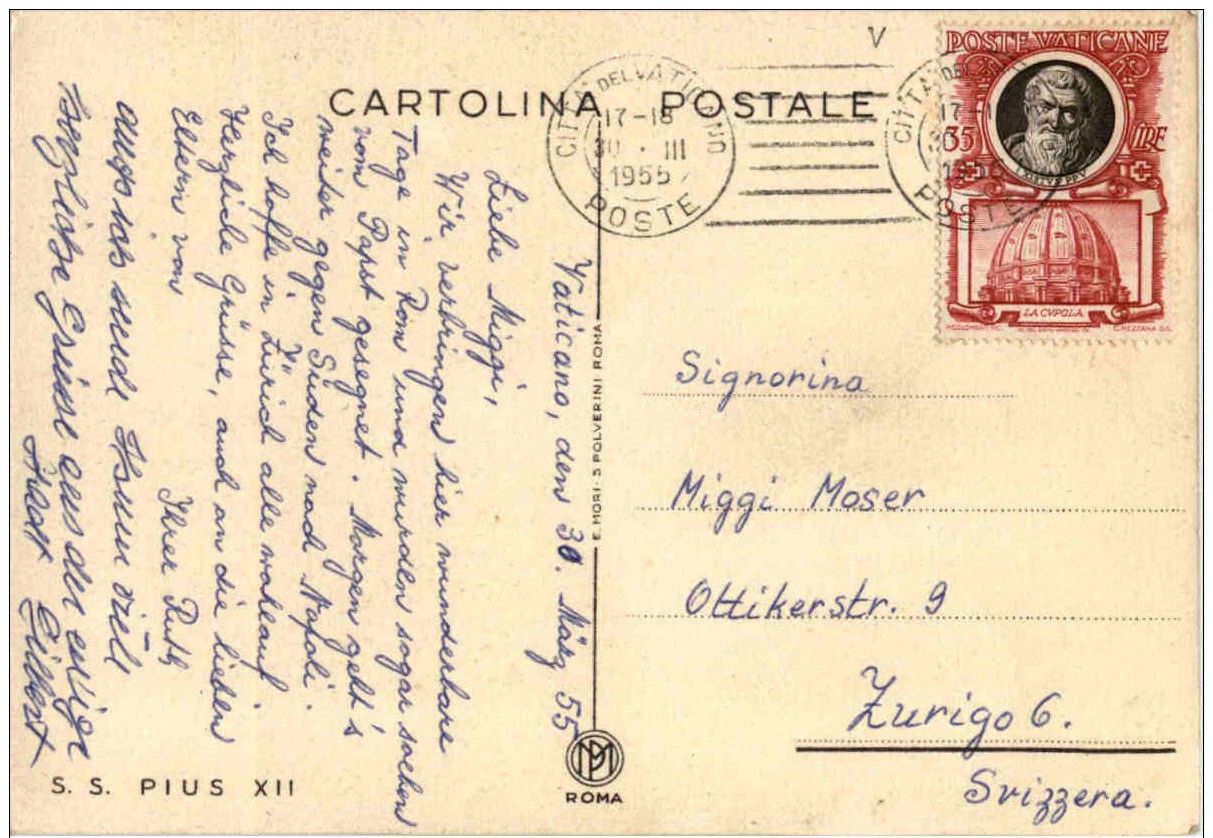 CARTOLINA POSTALE
Vaticano, den 30. März 55
Liebe Miggi,
Wir verbringen hier wunderbare
Tage in Rom und wurden sogar soeben
vom Papst gesegnet. Morgen geht's
weiter gegen Süden nach Napoli.
Ich hoffe in Zürich alle wohlauf
Herzliche Grüsse, auch an die lieben
Eltern von
Ihrer Ruth
herzliche Grüsse aus der ewige
S. S. PIUS XII
E. MORI - S POLVERINI ROMA
ROMA
V
CITTA' DEL VATICANO
17-18
30 · III
1955
POSTE
POSTE VATICANE
35 LIRE
LA CVPOLA
CITTA' DEL
17-1
POSTE
Signorina
Miggi Moser
Ottikerstr. 9
Zurigo 6.
Svizzera.